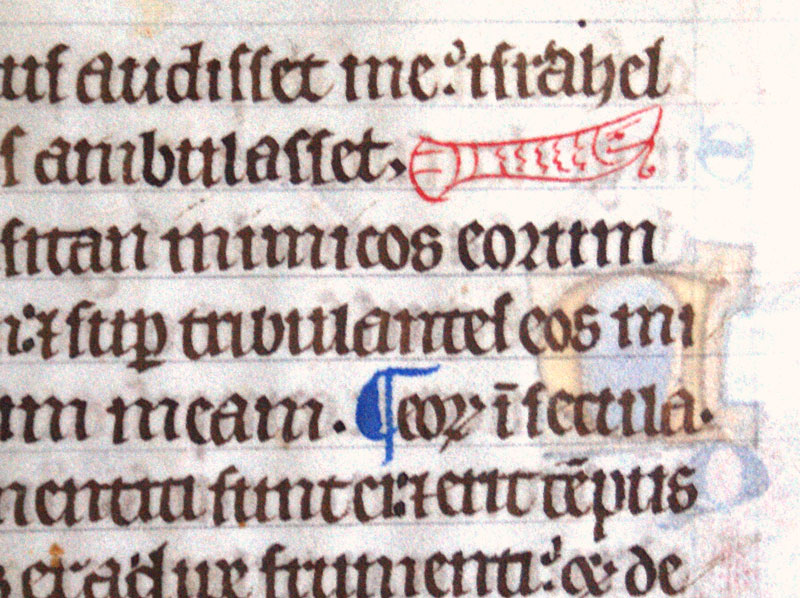 us audisset me: israhel
s ambulasset.
sitan inimicos eorum
r: ⁊ sup tribulantes eos mi
um meam. ¶ eoꝝ ī secula.
mentiti sunt ei: ⁊ erit tēpus
ex adipe frumenti: & de